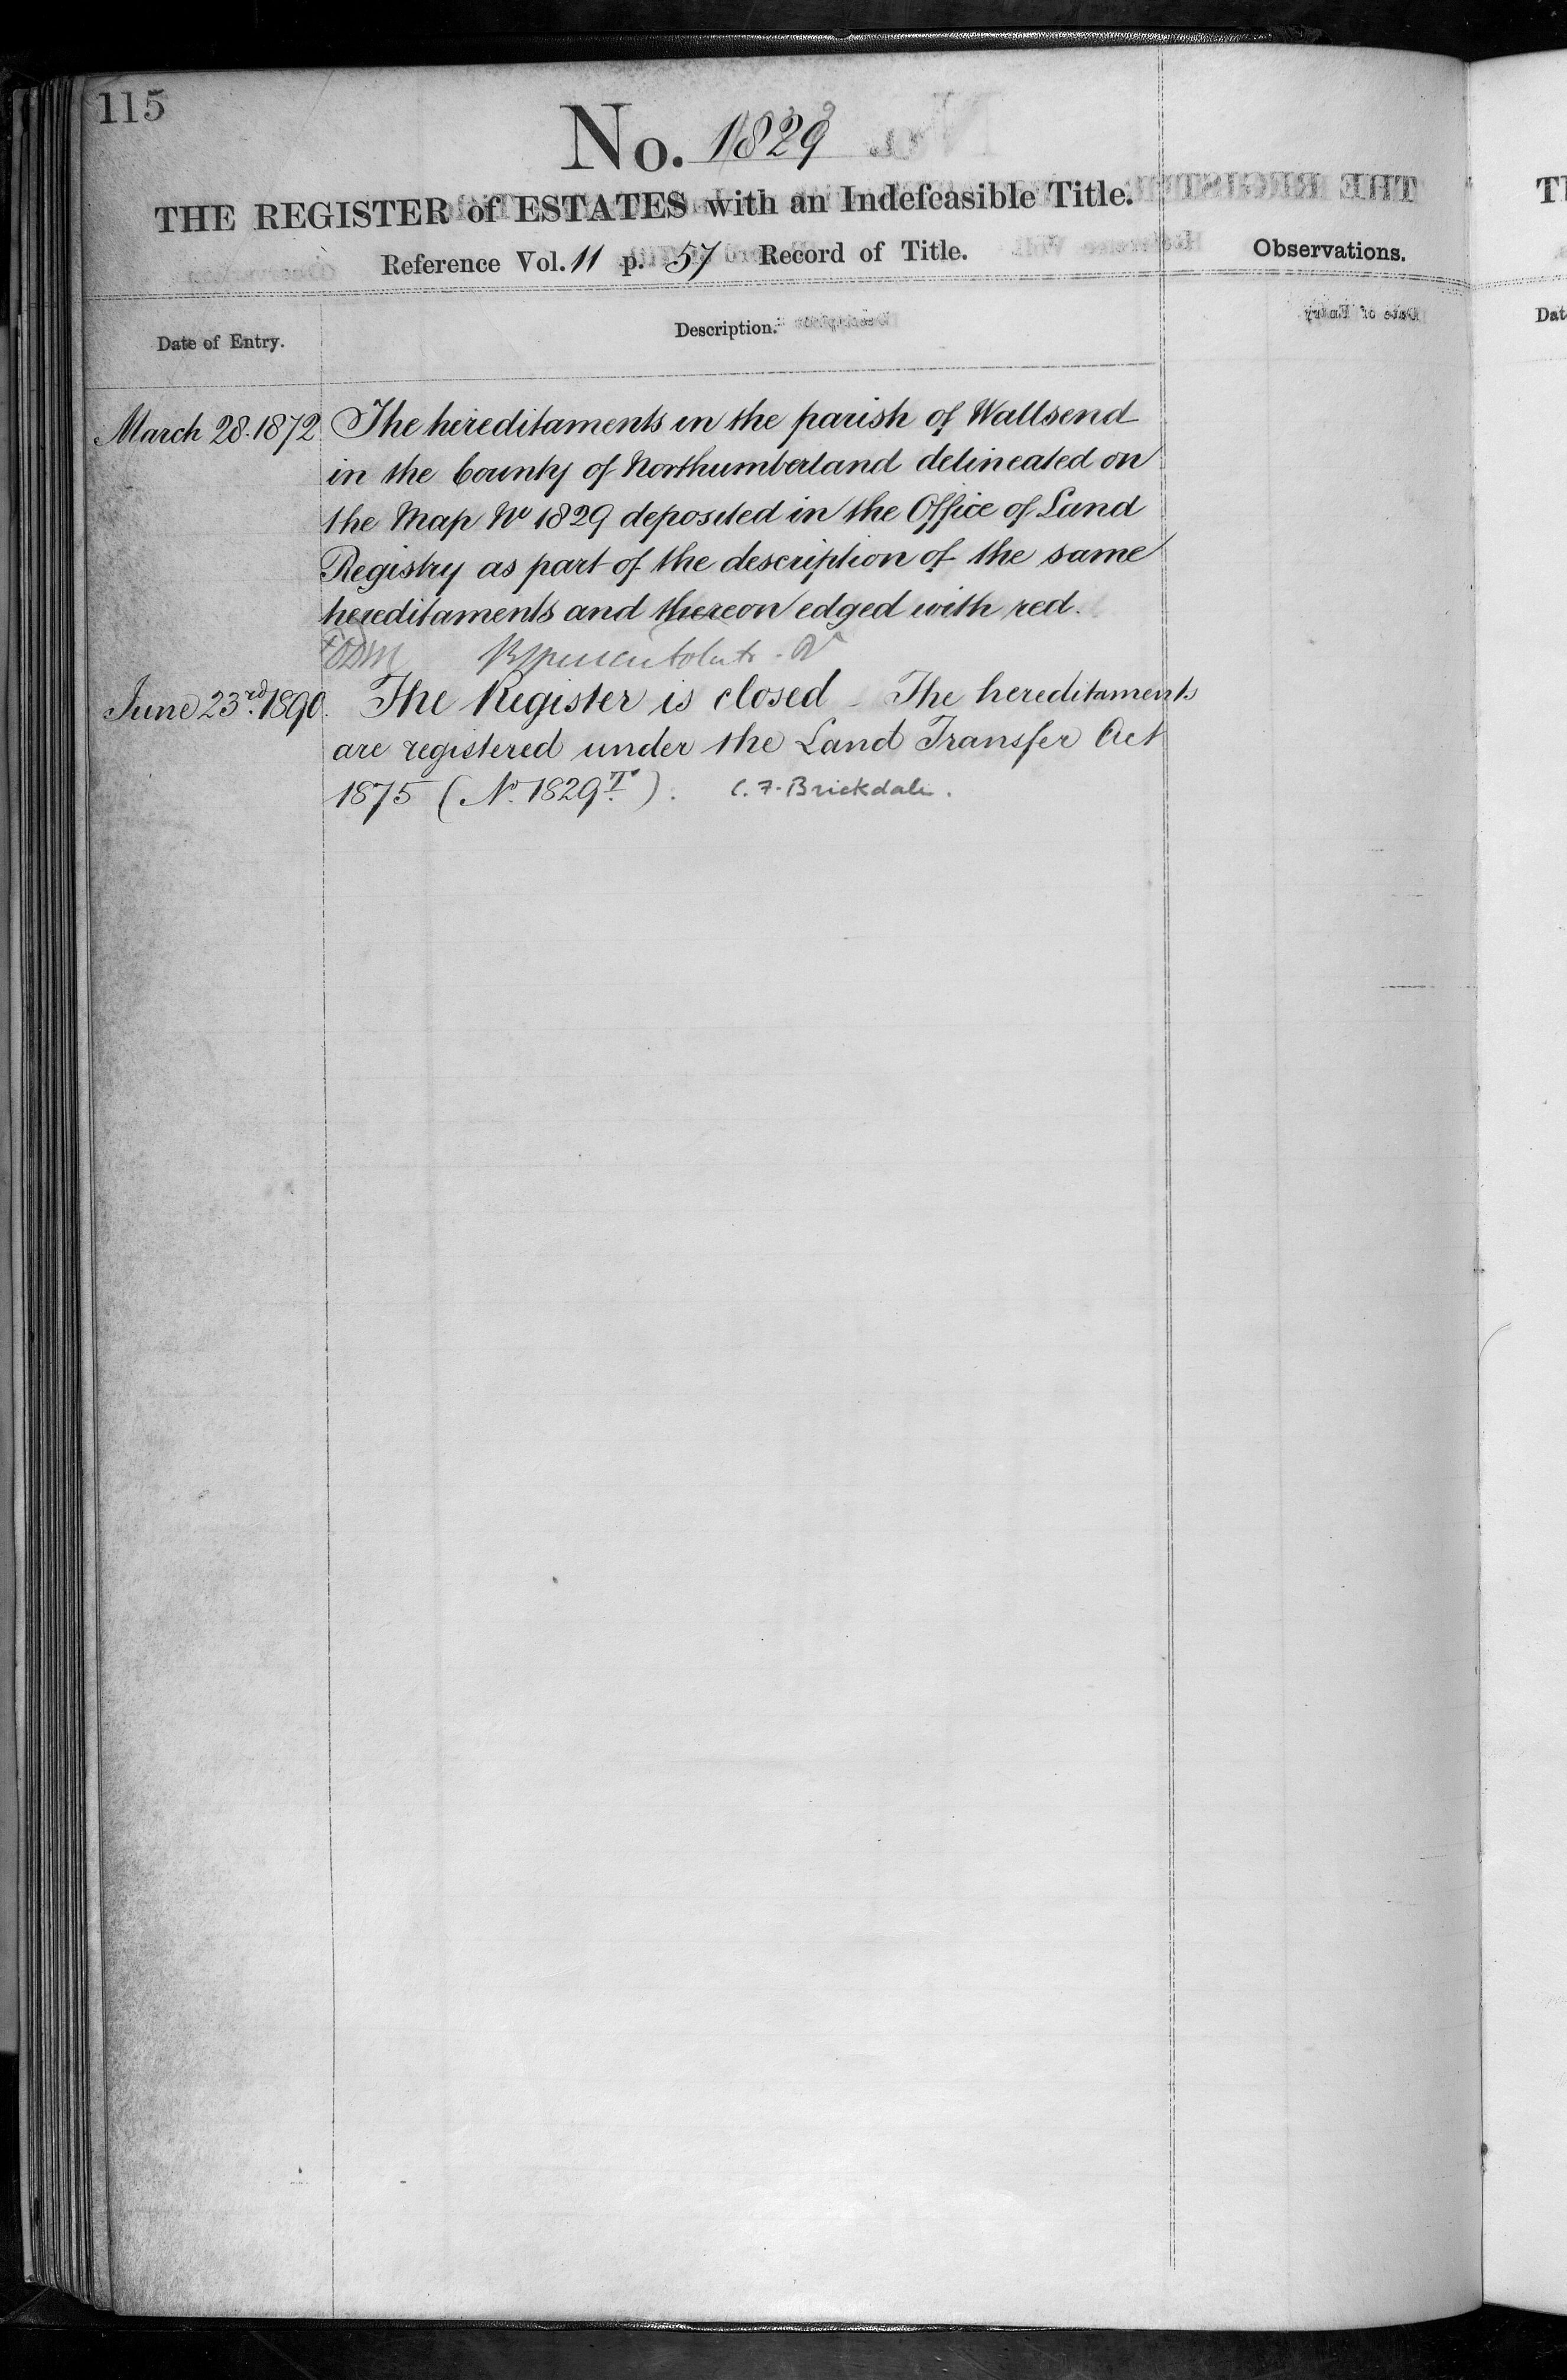 115
No. 1829
THE REGISTER of ESTATES with an Indefeasible Title.
Reference Vol. 11 p. 57 Record of Title.
Observations.
Date of Entry.
Description.
March 28. 1872 The hereditaments in the parish of Wallsend
in the County of Northumberland delineated on
the Map No 1829 deposited in the Office of Land
Registry as part of the description of the same
hereditaments and thereon edged with red.
June 23rd 1890. The Register is closed - The hereditaments
are registered under the Land Transfer Act
1875 (No. 1829 T.). C. F. Brickdale.